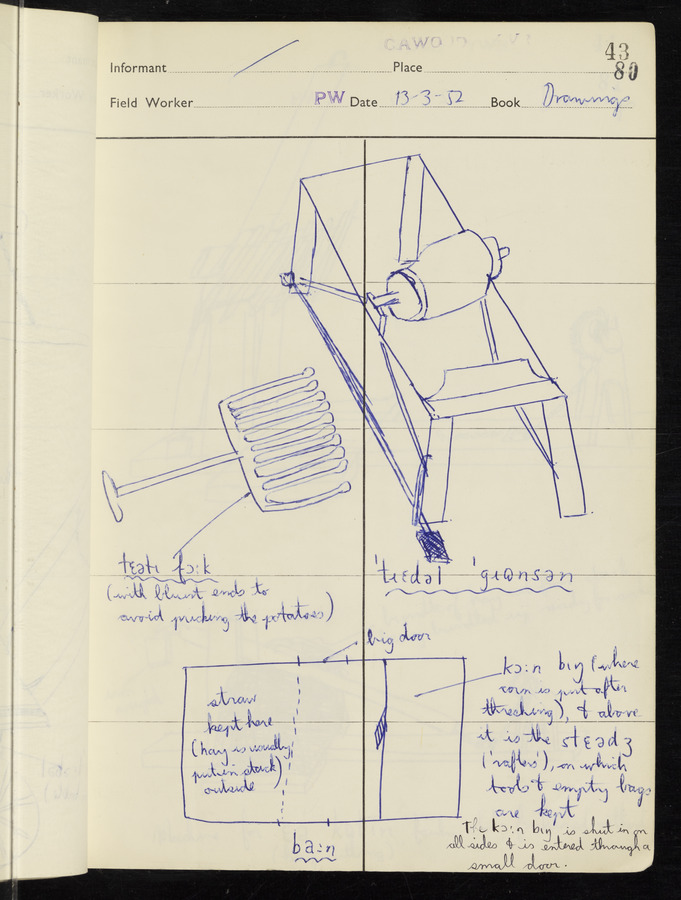 43
80
Informant
Place
Field Worker PW Date 13-3-52 Book Drawings
tɛətɪ fɔ:k
(with blunt ends to
avoid pricking the potatoes)
'tɹɛdəl 'gɹɑnsən
big door
straw
kept here
(hay is usually
put in stack)
outside
ba:n
kɔ:n bɪŋ (where
corn is put after
threshing), & above
it is the stɛədʒ
('rafters'), on which
tools & empty bags
are kept
The kɔ:n bɪŋ is shut in on
all sides & is entered through a
small door.